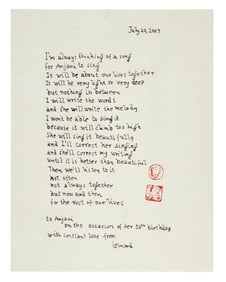 July 20, 2009
I'm always thinking of a song
for Anjani to sing
It will be about our lives together
It will be very light or very deep
but nothing in between
I will write the words
and she will write the melody
I won't be able to sing it
because it will climb too high
She will sing it beautifully
and I'll correct her singing
and she'll correct my writing
until it is better than beautiful
Then we'll listen to it
not often
not always together
but now and then
for the rest of our lives
to Anjani
on the occasion of her 50th birthday
with constant love from
Leonard